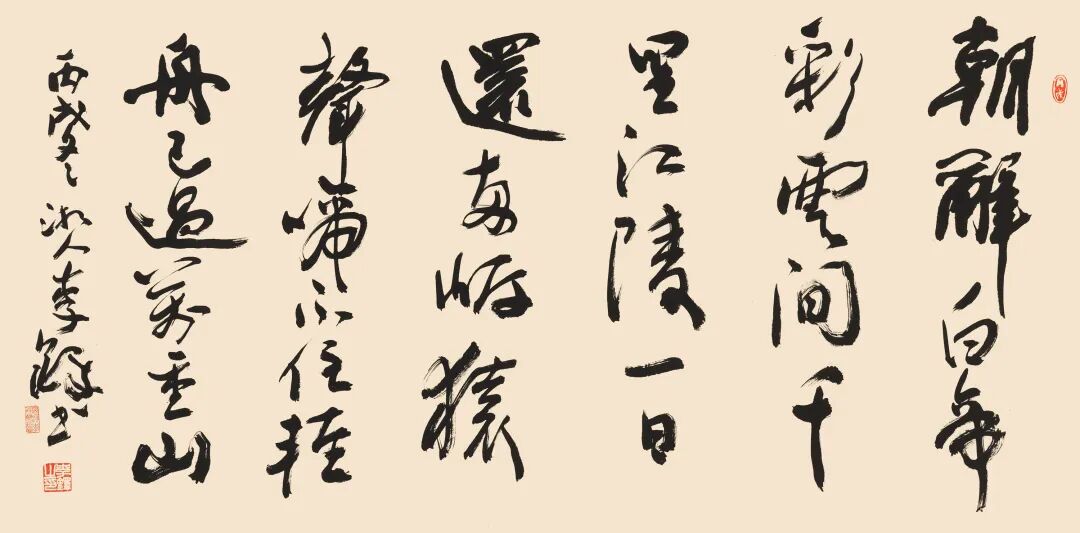 朝辭白帝
彩雲間千
里江陵一日
還兩岸猿
聲啼不住輕
舟已過萬重山
丙戌冬湘人李鐸書